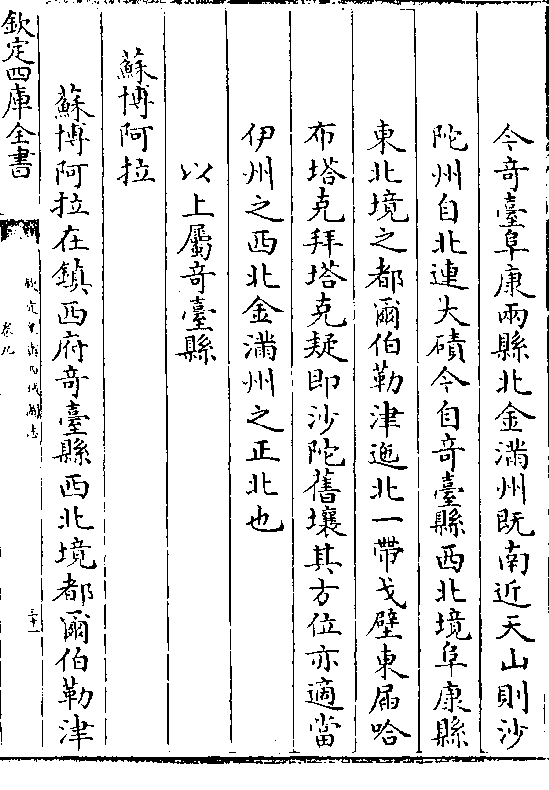 今奇臺阜康兩縣北金滿州既南近天山則沙
陀州自北連大磧今自奇臺縣西北境阜康縣
東北境之都爾伯勒津迤北一帶戈壁東屆哈
布塔克拜塔克疑即沙陀舊壤其方位亦適當
伊州之西北金滿州之正北也
以上屬奇臺縣
蘇博阿拉
蘇博阿拉在鎮西府奇臺縣西北境都爾伯勒津
欽定四庫全書
欽定皇輿西域圖志
卷九
三十一